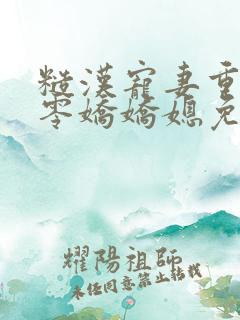 糙漢寵妻重
零嬌嬌媳免
耀陽祖師
未经同意禁止转载